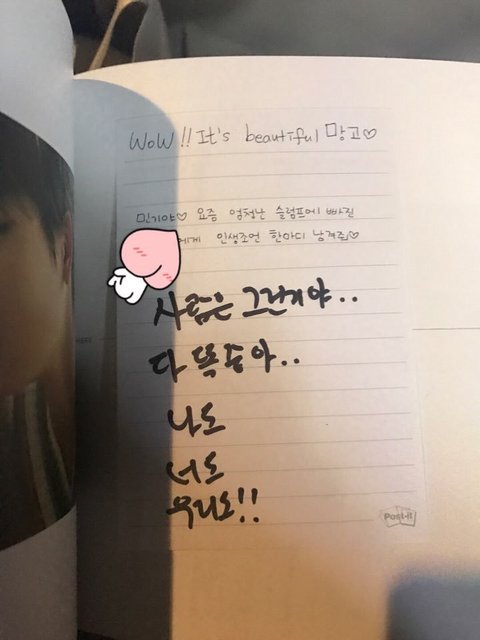 WoW!! It's beautiful 망고♡
민기야♡ 요즘 엄청난 슬럼프에 빠진
에게 인생조언 한마디 남겨줘♡
사람은 그런거야..
다 똑같아..
나도
너도
우리도!!
Post-it